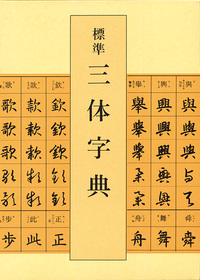 標準
三体字典
與 與 與 與 与 舜 舜
興 興 興 興 興 舞 舞
舉 舉 舉 舉 舉 舟 舟
欽 欽 欽 欽 欽 正 正
款 款 款 款 款 此 此
歌 歌 歌 歌 歌 步 歩